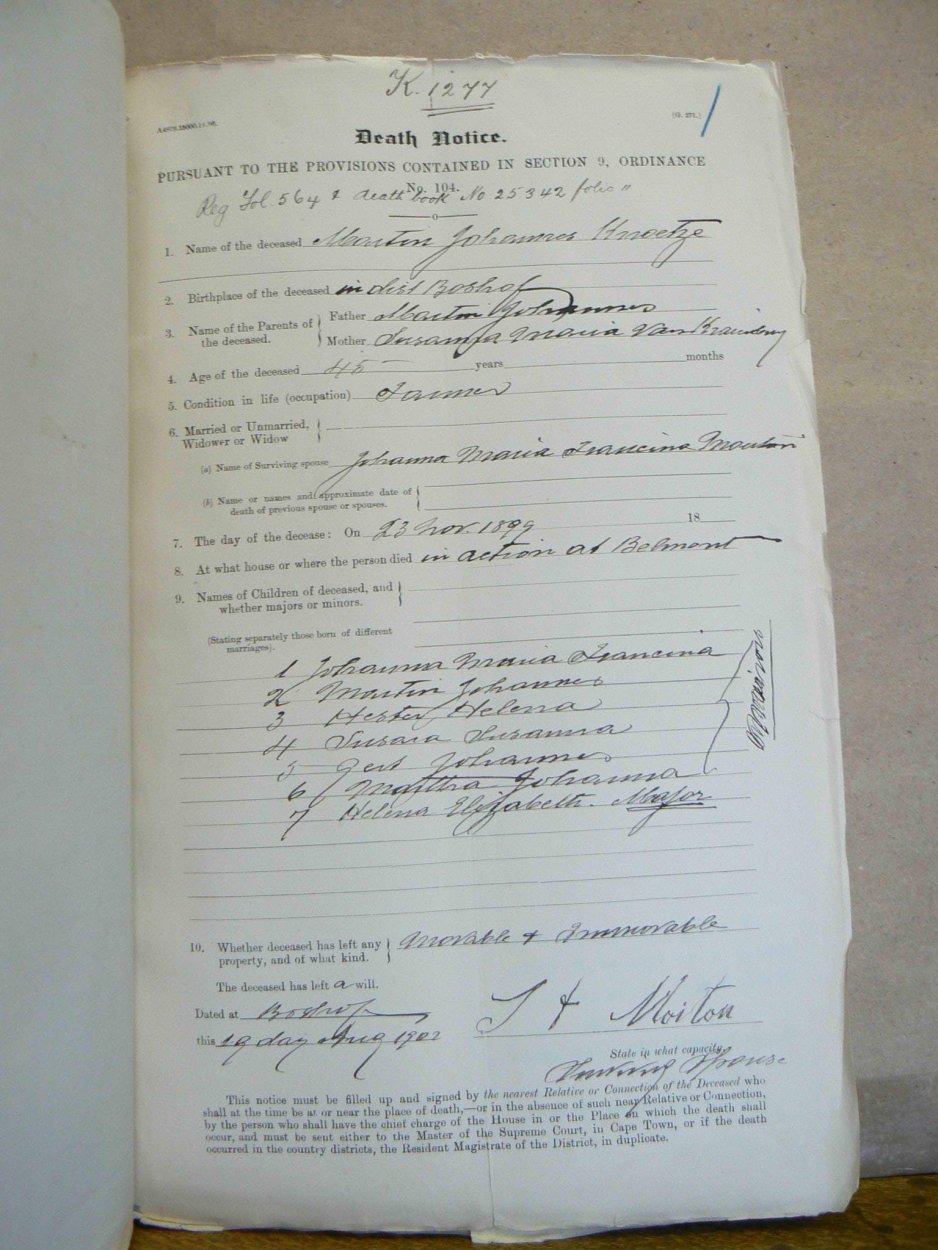 K. 1277
(G. 271.)
Death Notice.
PURSUANT TO THE PROVISIONS CONTAINED IN SECTION 9, ORDINANCE
No. 104.
Reg Fol. 564 & death book No 25342 folio "
1. Name of the deceased Martin Johannes Knoetze
2. Birthplace of the deceased in dist Boshof
3. Name of the Parents of the deceased. Father Martin Johannes
Mother Susanna Maria Van
4. Age of the deceased 45 years months
5. Condition in life (occupation) Farmer
6. Married or Unmarried,
Widower or Widow
(a) Name of Surviving spouse Johanna Maria Francina Mouton
(b) Name or names and approximate date of
death of previous spouse or spouses.
7. The day of the decease: On 23 Nov. 1899 18
8. At what house or where the person died in action at Belmont
9. Names of Children of deceased, and
whether majors or minors.
(Stating separately those born of different
marriages).
1 Johanna Maria Francina
2 Martin Johannes
3 Hester Helena
4 Susara Susanna
5 Gert Johannes
6 Martha Johanna
7 Helena Elizabeth. Major
minors
10. Whether deceased has left any
property, and of what kind. Movable & Immovable
The deceased has left a will.
Dated at Boshof
this 19 day Aug 1902
Moiton
State in what capacity.
Spouse
This notice must be filled up and signed by the nearest Relative or Connection of the Deceased who
shall at the time be at or near the place of death,—or in the absence of such near Relative or Connection,
by the person who shall have the chief charge of the House in or the Place on which the death shall
occur, and must be sent either to the Master of the Supreme Court, in Cape Town, or if the death
occurred in the country districts, the Resident Magistrate of the District, in duplicate.